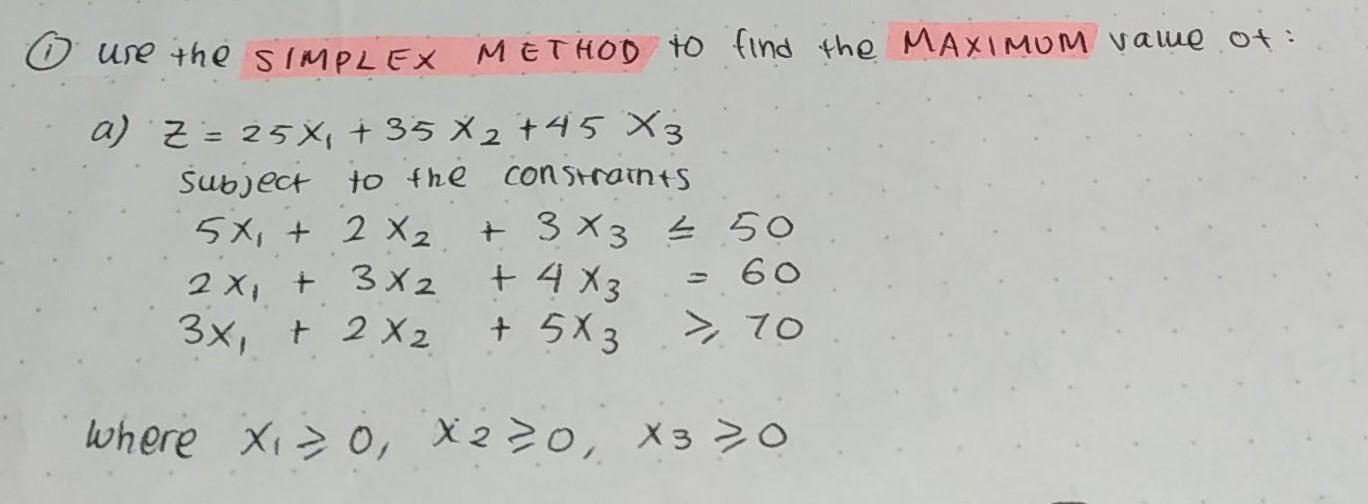 ① use the SIMPLEX METHOD to find the MAXIMUM value of:
a) Z = 25x₁ + 35x₂ + 45x₃
subject to the constraints
5x₁ + 2x₂ + 3x₃ ≤ 50
2x₁ + 3x₂ + 4x₃ = 60
3x₁ + 2x₂ + 5x₃ ≥ 70
where x₁ ≥ 0, x₂ ≥ 0, x₃ ≥ 0